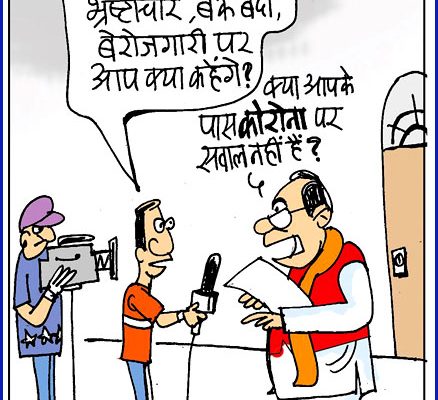 भ्रष्टाचार, बैंक बंदी,
बेरोजगारी पर
आप क्या कहेंगे?
क्या आपके
पास कोरोना पर
सवाल नहीं हैं?